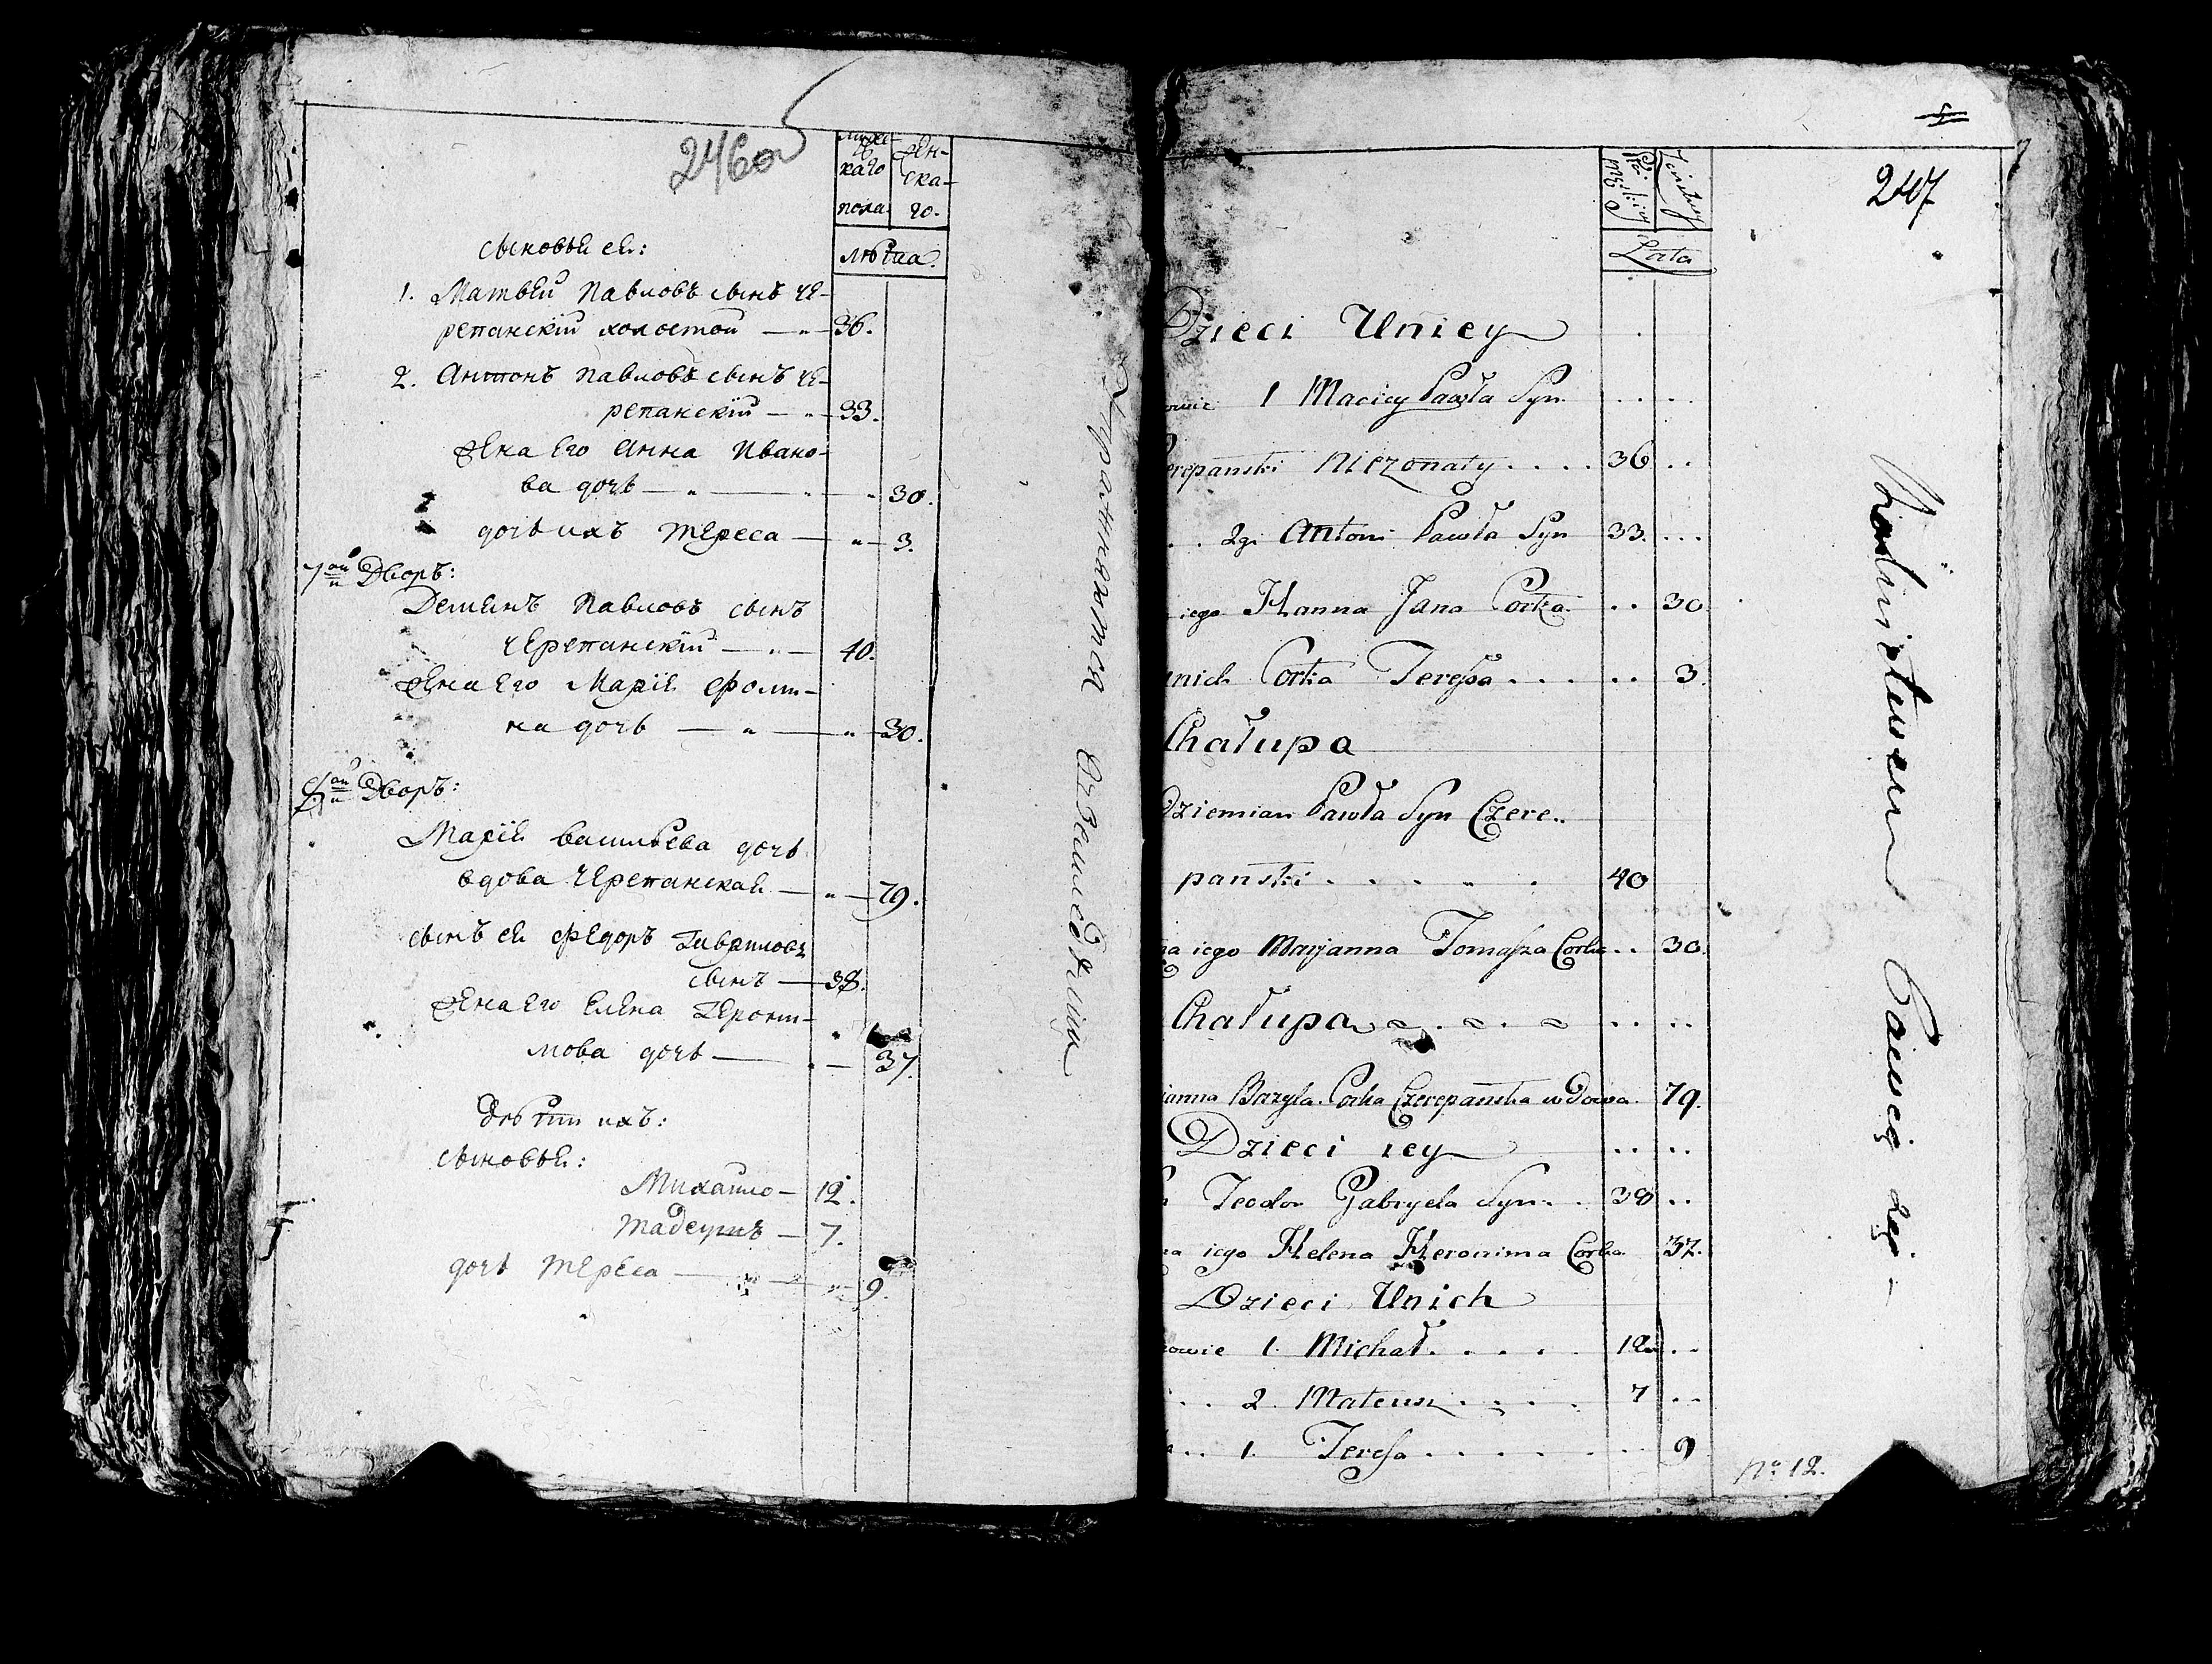 246об
мужескаго пола
женскаго.
лѣта.
сыновья ея:
1. Матвей Павловъ сынъ Че-
репанскій холостой — 36.
2. Антонъ Павловъ сынъ Че-
репанскій — 33.
Жена Его Анна Ивано-
ва дочь — 30.
дочь ихъ Тереса — 3.
7ой Дворъ:
Демьянъ Павловъ сынъ
Черепанскій — 40.
Жена Его Марія Фоми-
на дочь — 30.
8ой Дворъ:
Марія Васильева дочь
вдова Черепанская — 79.
сынъ ея Федоръ Гавриловъ
сынъ — 38.
Жена Его Елена Герони-
мова дочь — 37.
Дѣти ихъ:
сыновья:
Михайло — 12.
Тадеушъ — 7.
дочь Тереса — 9.
Упражняются въ земледѣліи
247
Męskiey Płci
Żeńskiey
Lata
Dzieci Uniey
owie 1 Maciey Pawła Syn
erepanski Niezonaty . . . . 36 . .
. . 2gi Antoni Pawła Syn 33. . . .
iego Hanna Jana Corka . . 30.
unich Corka Teressa . . . . . 3.
Chałupa
Dziemian Pawła Syn Czere..
panski . . . . . 40
na iego Marjanna Tomasza Corka . . 30.
Chałupa
janna Bazyla Corka Czerepanska wdowa 79.
Dzieci iey
Teodor Gabryela Syn . . 38 . .
na iego Helena Heronima Corka 37.
Dzieci Unich
owie 1. Michał . . . . 12 . .
. . 2. Mateusz . . . . 7 . .
. . 1. Teressa . . . . . . 9
Rolnictwem bawią się –
No 12.